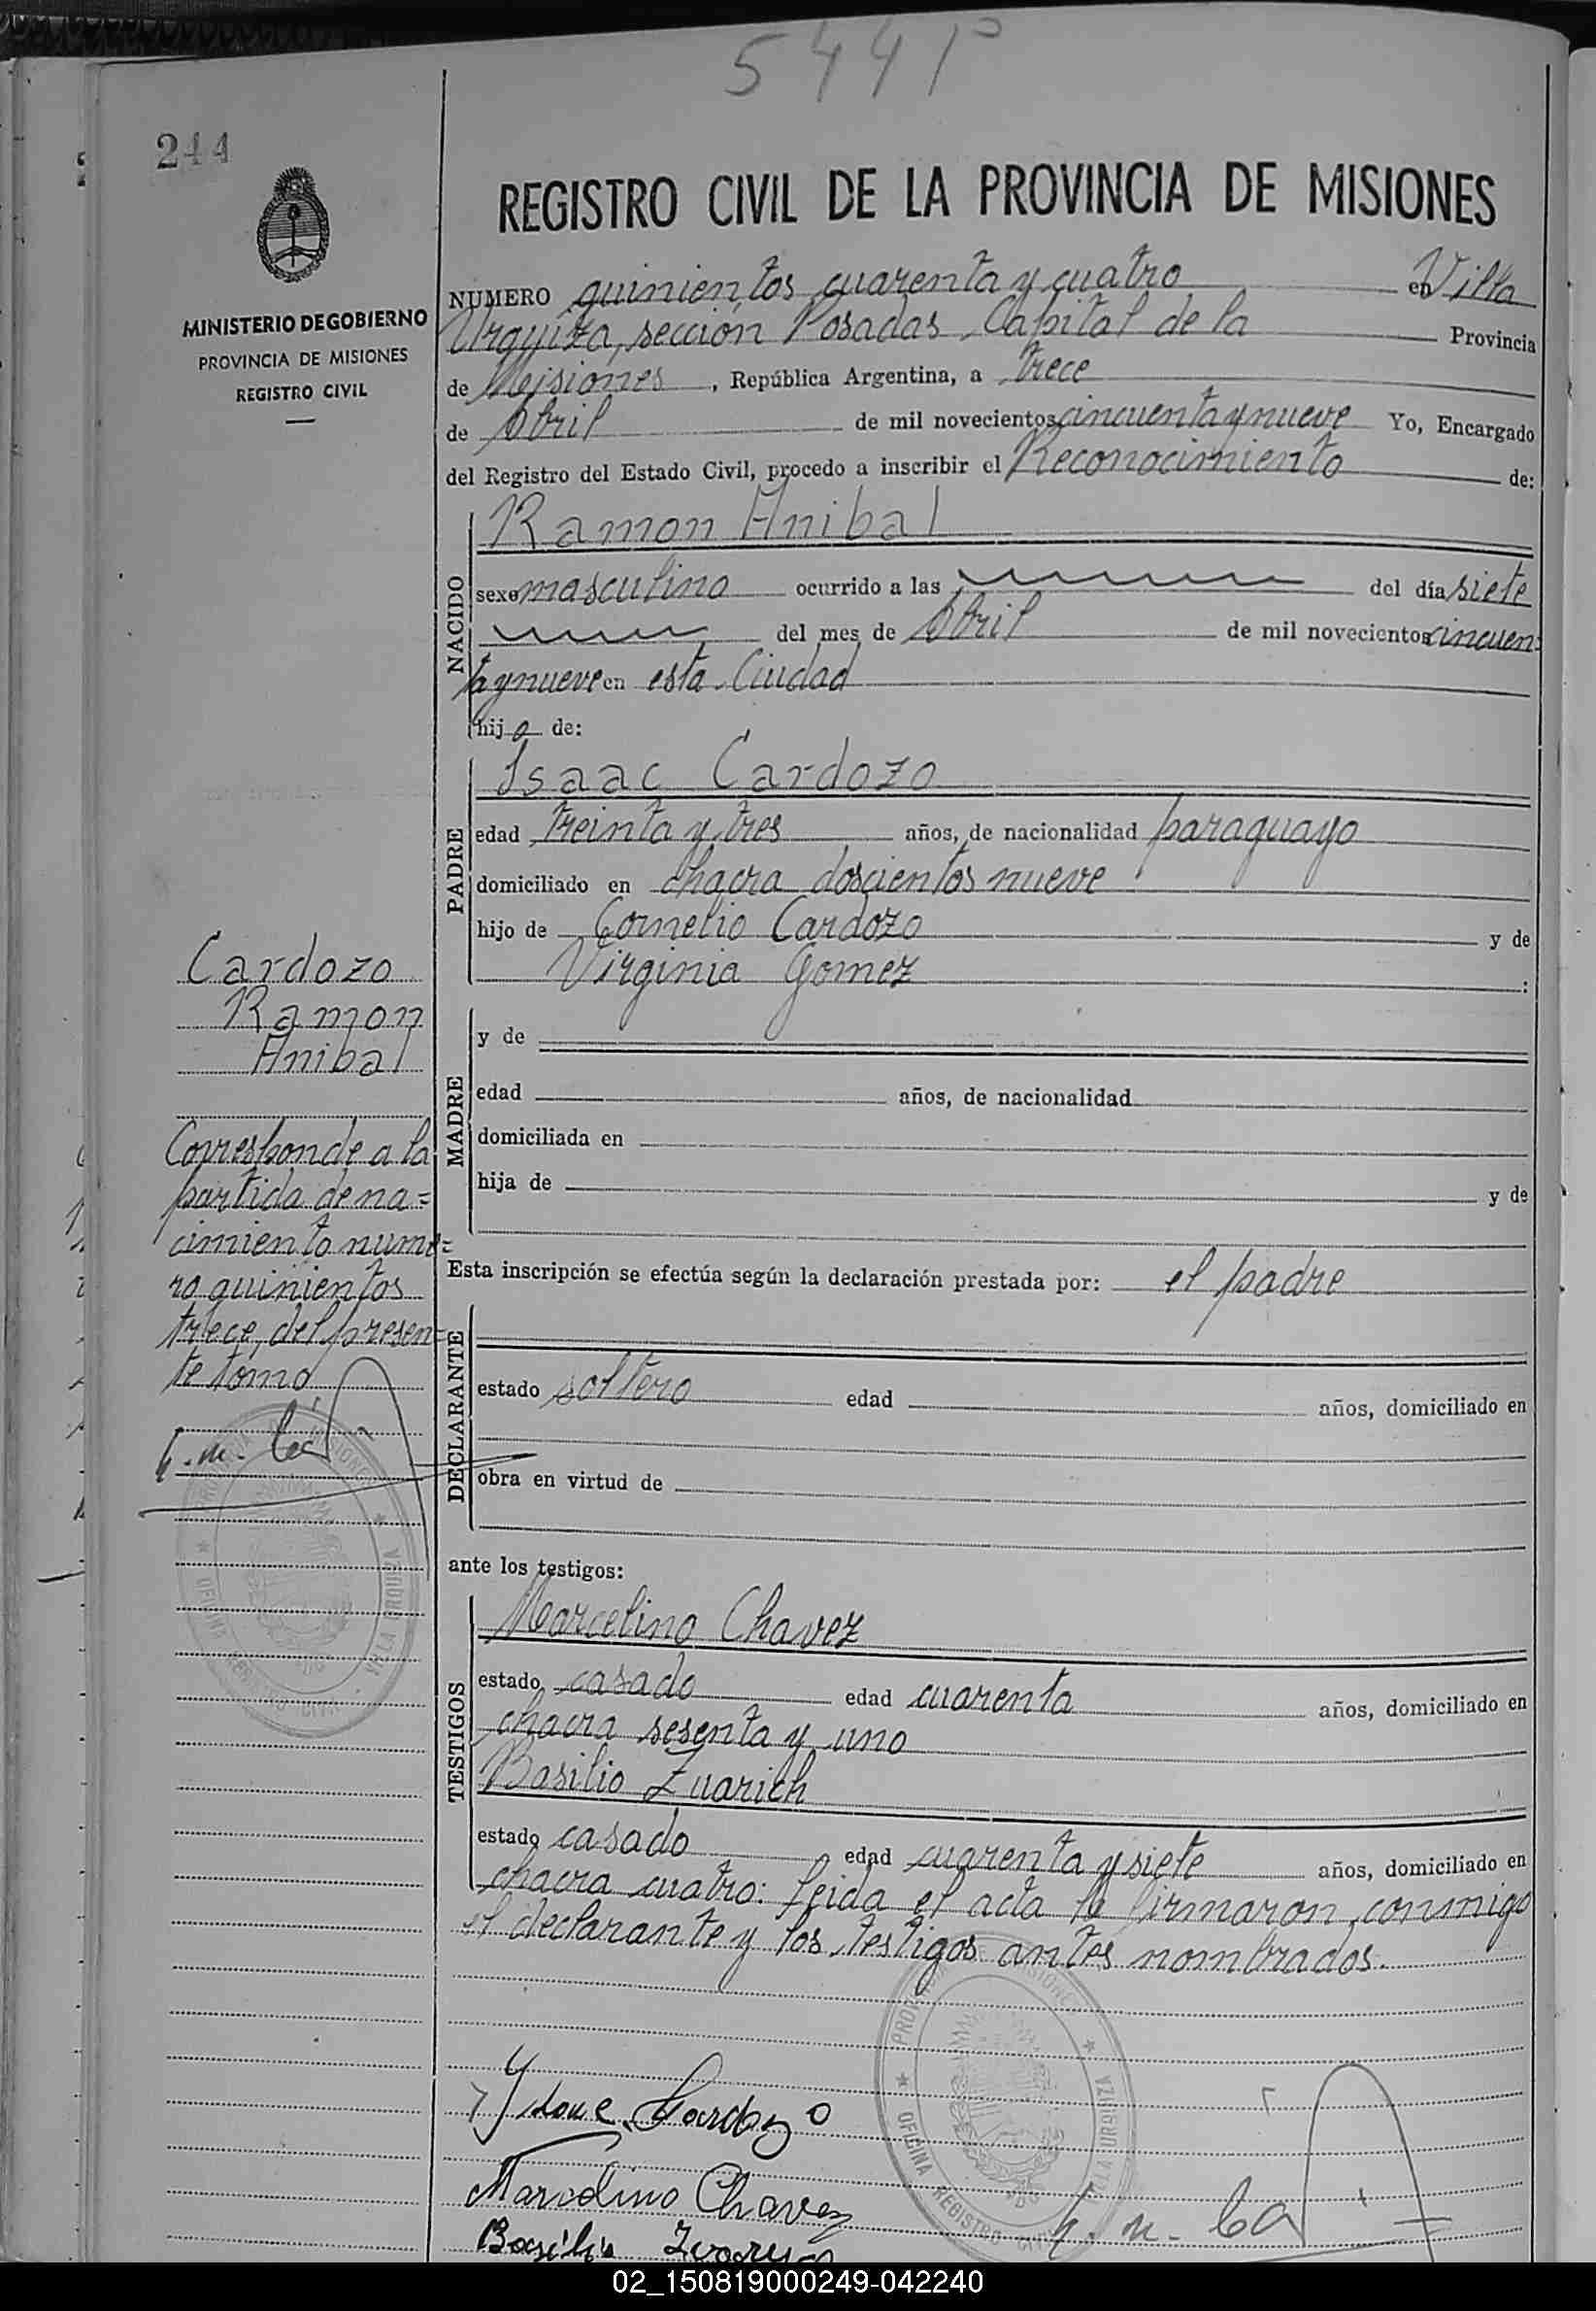 544 P
244
REGISTRO CIVIL DE LA PROVINCIA DE MISIONES
MINISTERIO DE GOBIERNO
PROVINCIA DE MISIONES
REGISTRO CIVIL
NUMERO quinientos cuarenta y cuatro en Villa
Urquiza, sección Posadas Capital de la Provincia
de Misiones, República Argentina, a trece
de Abril de mil novecientos cincuenta y nueve Yo, Encargado
del Registro del Estado Civil, procedo a inscribir el Reconocimiento de:
NACIDO
Ramon Anibal
sexo masculino ocurrido a las del día siete
del mes de Abril de mil novecientos cincuen=
ta y nueve en esta Ciudad
hijo de:
PADRE
Isaac Cardozo
edad treinta y tres años, de nacionalidad paraguayo
domiciliado en chacra doscientos nueve
hijo de Cornelio Cardozo y de
Virginia Gomez :
MADRE
y de
edad años, de nacionalidad
domiciliada en
hija de y de
Esta inscripción se efectúa según la declaración prestada por: el padre
DECLARANTE
estado soltero edad años, domiciliado en
obra en virtud de
ante los testigos:
TESTIGOS
Marcelino Chavez
estado casado edad cuarenta años, domiciliado en
chacra sesenta y uno
Basilio Zuarich
estado casado edad cuarenta y siete años, domiciliado en
chacra cuatro: Leida el acta la firmaron conmigo
el declarante y los testigos antes nombrados.
Cardozo
Ramon
Anibal
Corresponde a la
partida de na=
cimiento nume=
ro quinientos
trece, del presen=
te tomo
PROVINCIA MISIONES
OFICINA REGISTRO CIVIL
VILLA URQUIZA
Cardozo
Marcelino Chavez
Basilio
PROVINCIA MISIONES
OFICINA REGISTRO CIVIL
VILLA URQUIZA
02_150819000249-042240